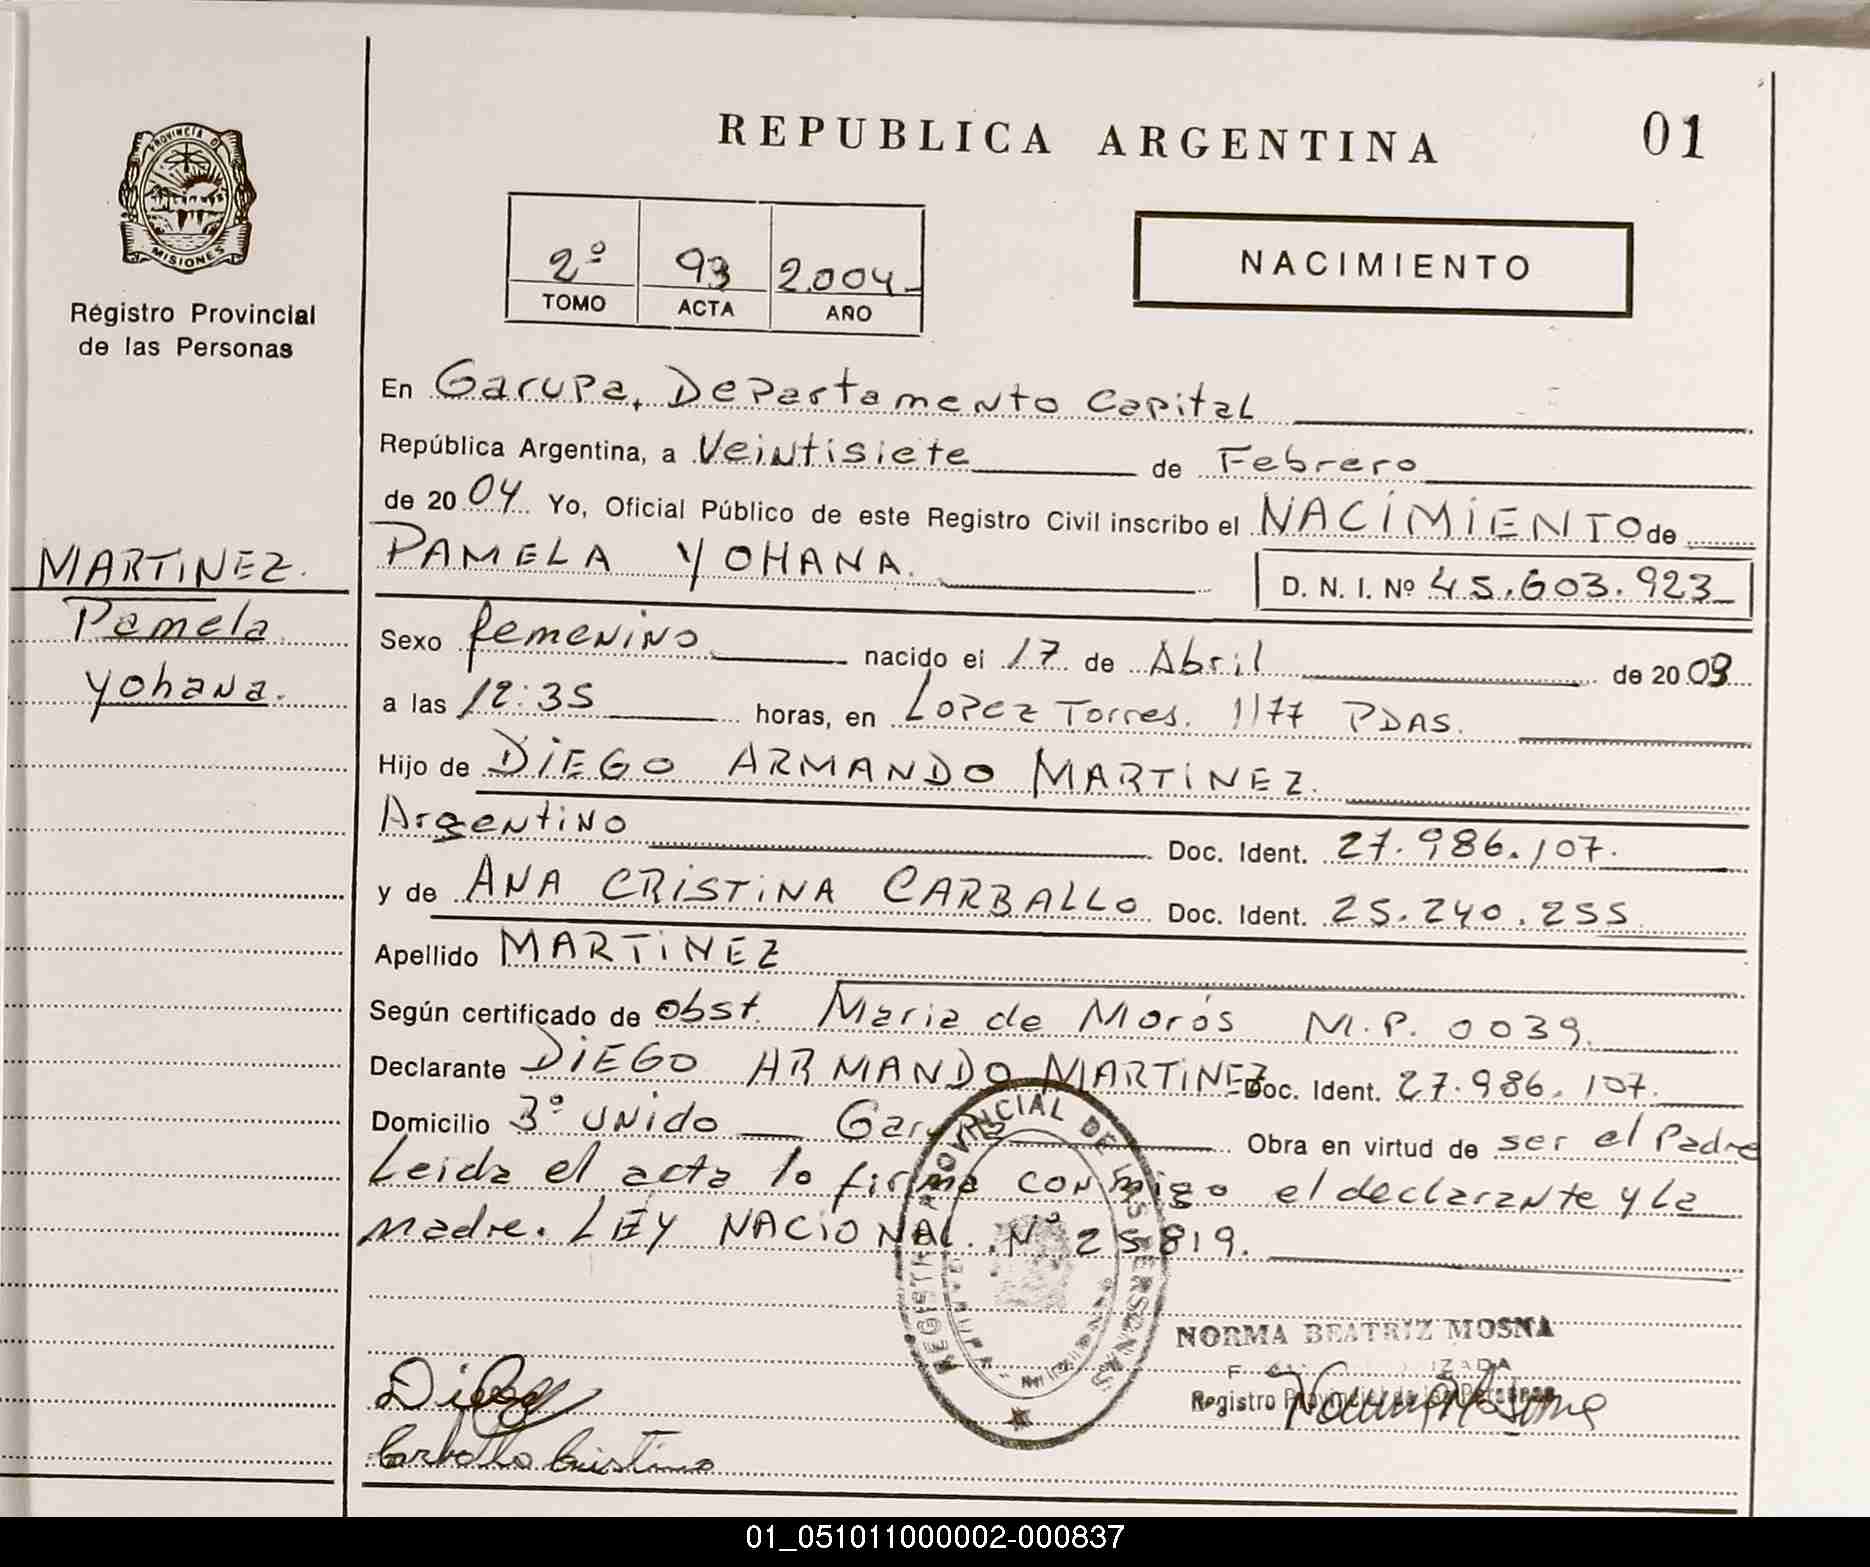 REPUBLICA ARGENTINA
01
PROVINCIA DE
MISIONES
Registro Provincial
de las Personas
2º 93 2.004
TOMO ACTA AÑO
NACIMIENTO
En Garupa, Departamento Capital
República Argentina, a Veintisiete de Febrero
de 2004 Yo, Oficial Público de este Registro Civil inscribo el NACIMIENTO de
MARTINEZ.
Pamela
Yohana.
PAMELA YOHANA. D. N. I. Nº 45.603.923
Sexo femenino nacido el 17 de Abril de 2003
a las 12:35 horas, en Lopez Torres. 1177 PDAS.
Hijo de DIEGO ARMANDO MARTINEZ.
Argentino Doc. Ident. 27.986.107.
y de ANA CRISTINA CARBALLO Doc. Ident. 25.240.255
Apellido MARTINEZ
Según certificado de obst. Maria de Morós M.P. 0039.
Declarante DIEGO ARMANDO MARTINEZ Doc. Ident. 27.986.107.
Domicilio 3º unido Garupa Obra en virtud de ser el Padre
Leida el acta lo firma conmigo el declarante y la
madre. LEY NACIONAL Nº 25819.
REGISTRO PROVINCIAL DE LAS PERSONAS
NORMA BEATRIZ MOSNA
Registro Provincial de las Personas
Diego
Carballo Cristina
01_051011000002-000837